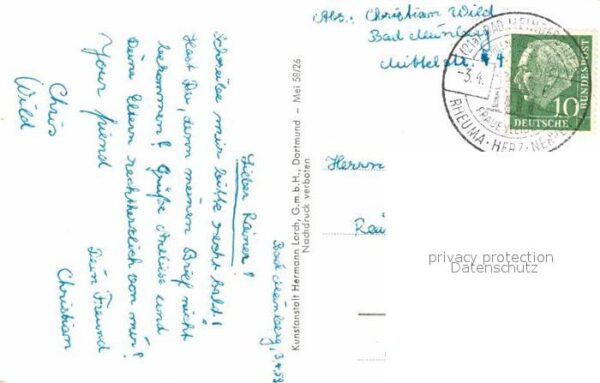 Abs.: Christian Wild
Bad Meinberg
Mittelstr. 44
(21a) BAD MEINBERG
-3.4.
FRAUENLEIDEN
RHEUMA · HERZ · NERVEN
10
DEUTSCHE
BUNDESPOST
Herrn
Rai
privacy protection
Datenschutz
Kunstanstalt Hermann Lorch, G.m.b.H., Dortmund – Mei 58/26
Nachdruck verboten
Bad Meinberg, 3.4.58
Lieber Rainer!
Schreibe mir bitte recht bald!
Hast Du, denn meinen Brief nicht
bekommen? Grüße Anliese und
Deine Eltern rechtherzlich von mir!
Your friend
Dein Freund
Chris
Wild
Christian